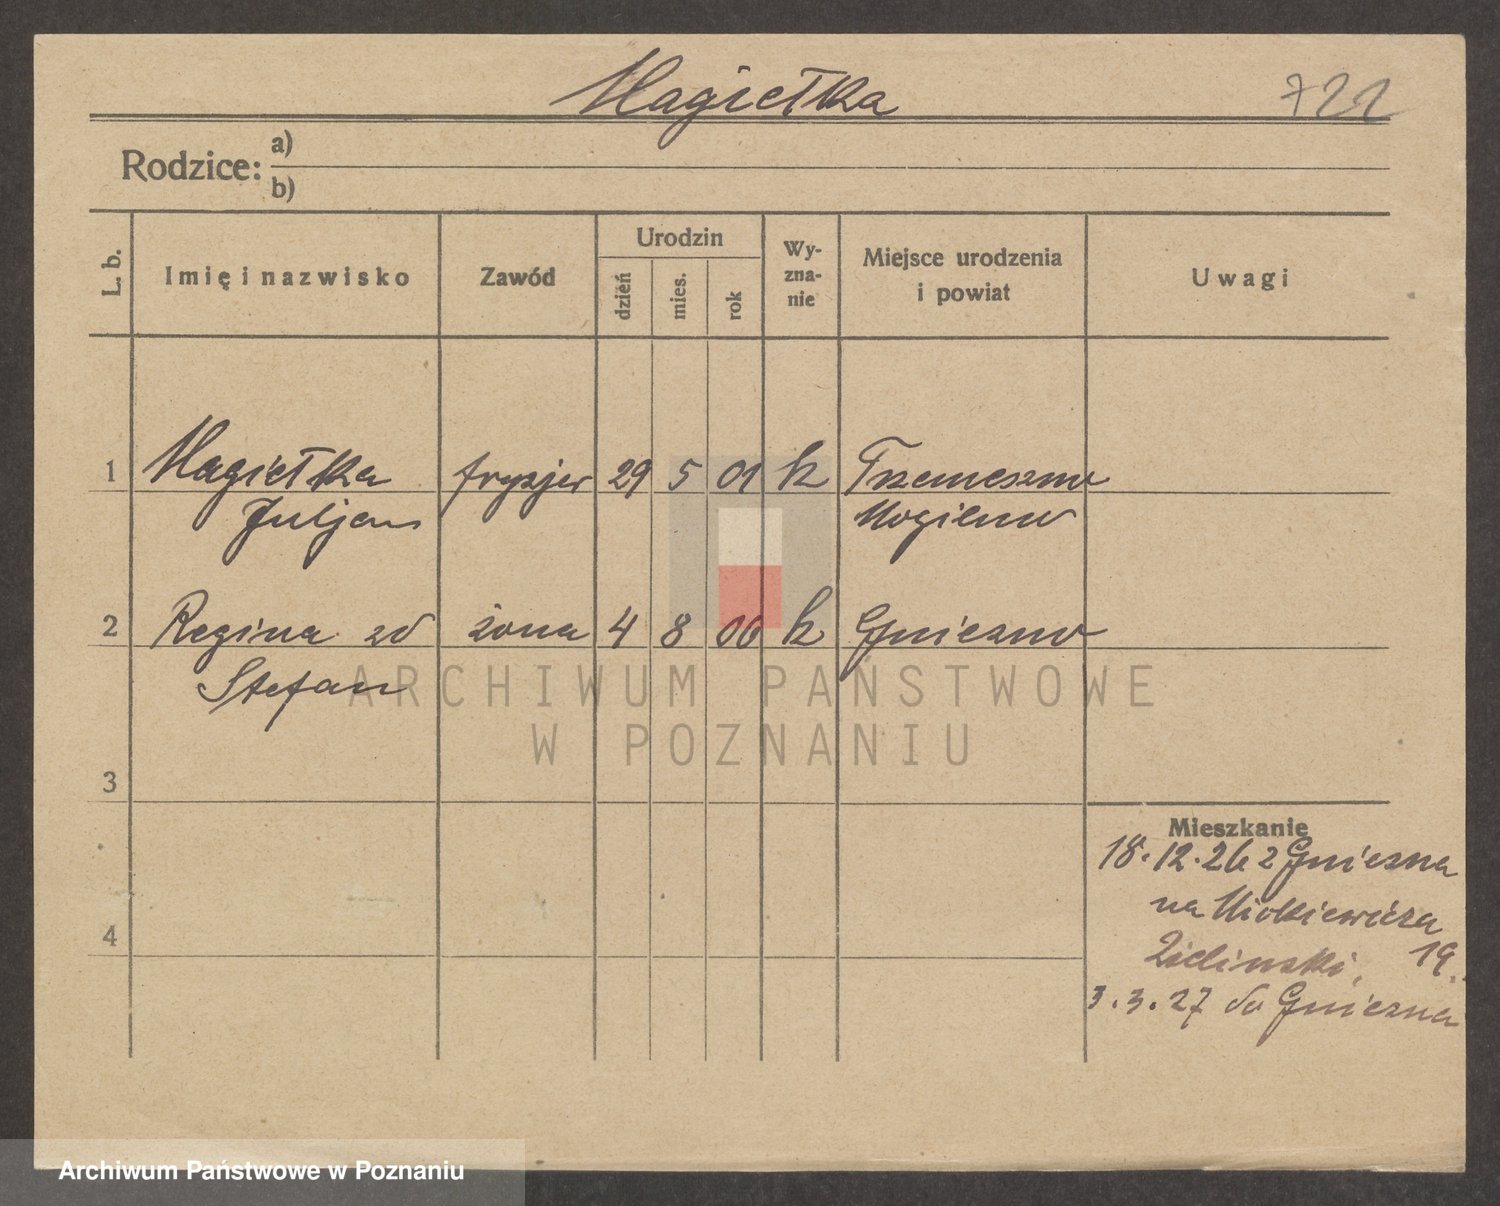 Magiełka 722
Rodzice: a)
b)
L. b. Imię i nazwisko Zawód Urodzin dzień mies. rok Wy-zna-nie Miejsce urodzenia i powiat Uwagi
1 Magiełka fryzjer 29 5 01 k Trzemeszno
Juljan Mogilno
2 Regina zd żona 4 8 06 k Gniezno
Stefan
ARCHIWUM PAŃSTWOWE
W POZNANIU
3
Mieszkanie
18.12.26 z Gniezna
na Mickiewicza
4
Zieliński, 19.
3.3.27 do Gniezna
Archiwum Państwowe w Poznaniu